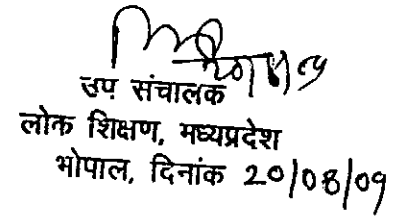 उप संचालक
लोक शिक्षण, मध्यप्रदेश
भोपाल, दिनांक 20/08/09